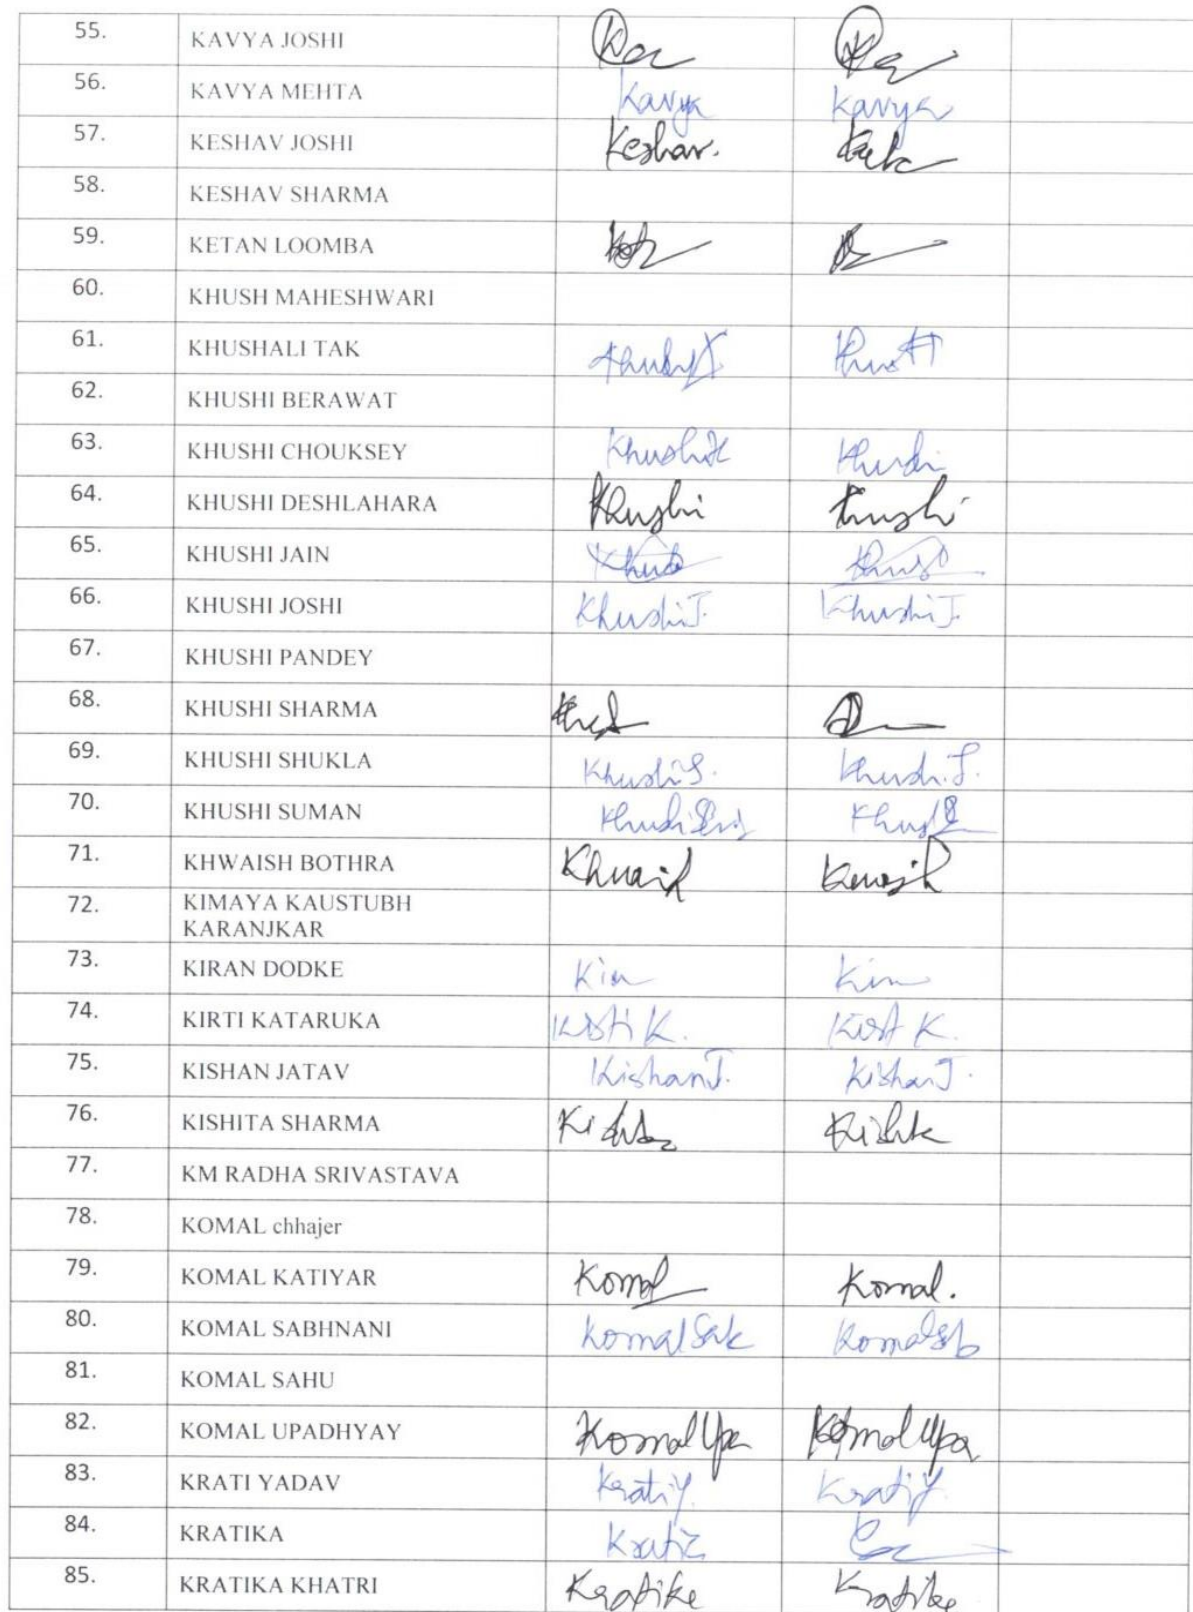 55. KAVYA JOSHI
56. KAVYA MEHTA Kavya Kavya
57. KESHAV JOSHI Keshav.
58. KESHAV SHARMA
59. KETAN LOOMBA
60. KHUSH MAHESHWARI
61. KHUSHALI TAK
62. KHUSHI BERAWAT
63. KHUSHI CHOUKSEY Khushi
64. KHUSHI DESHLAHARA Khushi Khushi
65. KHUSHI JAIN
66. KHUSHI JOSHI Khushi J. Khushi J.
67. KHUSHI PANDEY
68. KHUSHI SHARMA
69. KHUSHI SHUKLA Khushi S. Khushi. S.
70. KHUSHI SUMAN
71. KHWAISH BOTHRA
72. KIMAYA KAUSTUBH
KARANJKAR
73. KIRAN DODKE
74. KIRTI KATARUKA Kirti K.
75. KISHAN JATAV Kishan J. Kishan J.
76. KISHITA SHARMA
77. KM RADHA SRIVASTAVA
78. KOMAL chhajer
79. KOMAL KATIYAR Komal Komal.
80. KOMAL SABHNANI Komal Sab Komal Sab
81. KOMAL SAHU
82. KOMAL UPADHYAY Komal Upa Komal Upa
83. KRATI YADAV Krati Y. Krati Y.
84. KRATIKA
85. KRATIKA KHATRI Kratika Kratika